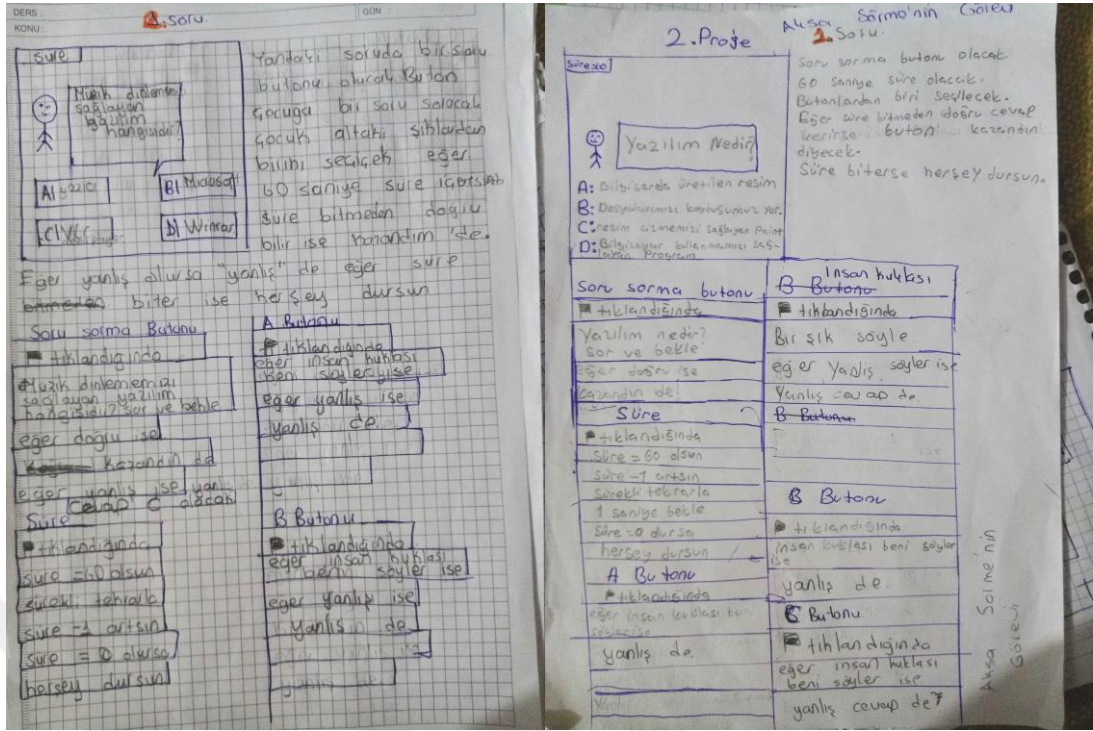 DERS:
GÜN:
KONU:
1. soru.
Süre
Müzik dinlememi
sağlayan
yazılım
hangisidir?
A) yazıcı
B) Microsoft
C) VLC
D) Winrar
Yandaki soruda bir soru
butonu olucak. Buton
çocuğa bir soru soracak
çocuk altaki şıklardan
birini seçicek eğer
60 saniye süre içersinde
süre bitmeden doğru
bilir ise kazandım "de.
Eğer yanlış olursa "yanlış" de eğer süre
biter ise herşey dursun
Soru sorma Butonu
tıklandığında
Müzik dinlememizi
sağılayan yazılım
hangisidir? sor ve bekle
eğer doğru ise
kazandın de
eğer yanlış ise yanlış de
Cevap C olacak
Süre
tıklandığında
süre = 60 olsun
sürekli tekrarla
süre -1 artsın
süre = 0 olursa
herşey dursun
A Butonu
tıklandığında
eğer insan kuklası
beni söylerse ise
eğer yanlış ise
yanlış de.
B Butonu
tıklandığında
eğer insan kuklası
beni söyler ise
eğer yanlış ise
yanlış de
yanlış de
2. Proje
Aksa Sörme'nin Görev
1. Soru.
Süre 60
Yazılım Nedir?
A: Bilgisarda üretilen resim
B: Dosyalarımızı koyduğumuz yer.
C: resim çizmemizi sağlayan Paint
D: Bilgisayar kullanmamızı sağ-
layan Program
Soru sorma butonu olacak.
60 saniye süre olacak.
Butonlardan biri seçilecek.
Eğer süre bitmeden doğru cevap
verirse buton kazandın
diyecek.
Süre biterse herşey dursun.
Soru sorma butonu
tıklandığında
Yazılım nedir?
sor ve bekle
eğer doğru ise
kazandın de.
Süre
tıklandığında
Süre = 60 olsun
Süre -1 artsın
Sürekli tekrarla
1 saniye bekle
Süre = 0 dursa
herşey dursun
A Butonu
tıklandığında
eğer insan kuklası beni
söylerise
yanlış de.
İnsan kuklası
B Butonu
tıklandığında
Bir şık söyle
eğer Yanlış söyler ise
Yanlış cevap de.
B Butonu
ise
B Butonu
tıklandığında
insan kuklası beni söyler
ise
yanlış de.
C Butonu
tıklandığında
eğer insan kuklası
beni söyler ise
yanlış cevap de?
Aksa Sörme'nin
Görevi